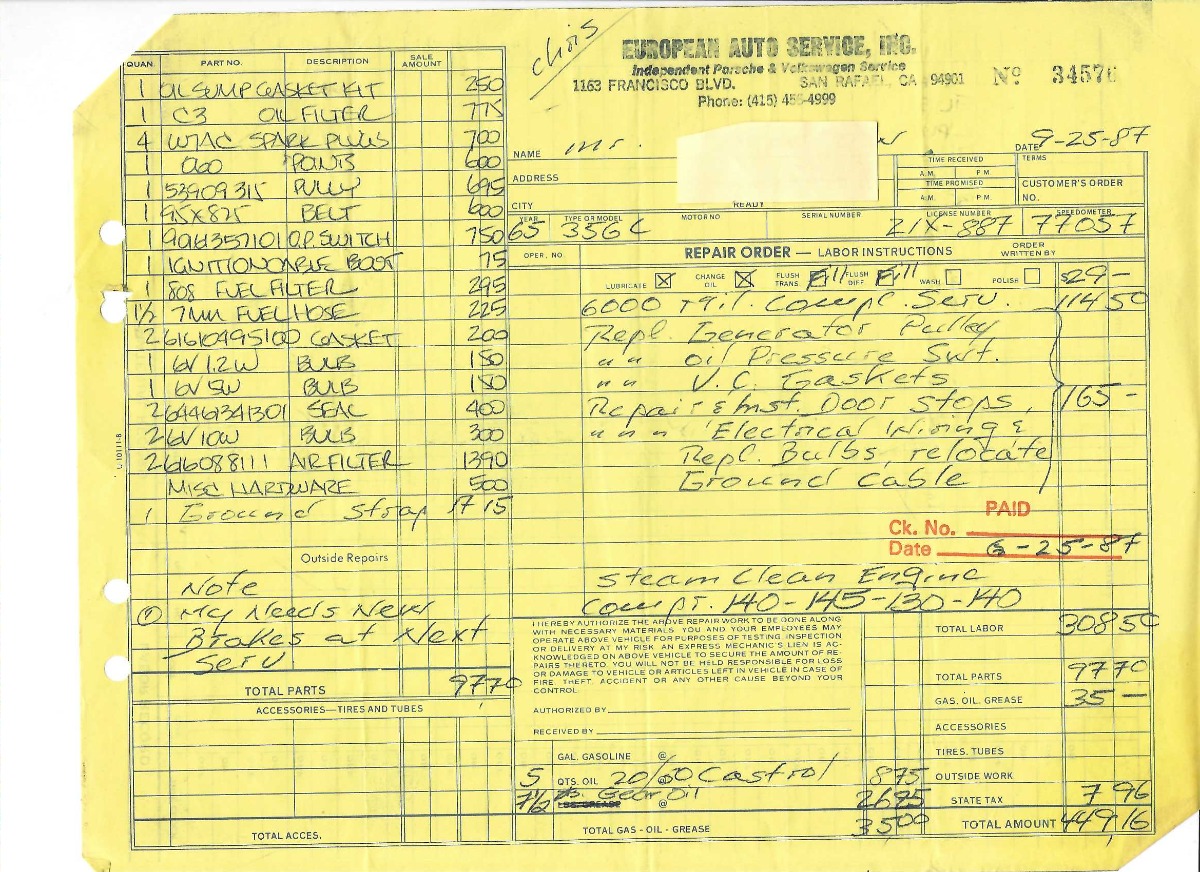 chris
EUROPEAN AUTO SERVICE, INC.
Independent Porsche & Volkswagen Service
1163 FRANCISCO BLVD. SAN RAFAEL, CA 94901
Phone: (415) 455-4999
Nº 34576
NAME Mr.
DATE 9-25-87
ADDRESS
CITY
READY
TIME RECEIVED
A.M. P.M.
TIME PROMISED
A.M. P.M.
TERMS
CUSTOMER'S ORDER
NO.
YEAR 65
TYPE OR MODEL 356C
MOTOR NO
SERIAL NUMBER
LICENSE NUMBER ZIX-887
SPEEDOMETER 77057
QUAN. PART NO. DESCRIPTION SALE AMOUNT
1 OIL SUMP GASKET KIT 250
1 C3 OIL FILTER 775
4 W7AC SPARK PLUGS 700
1 060 POINTS 600
1 53909315 PULLY 695
1 9.5X875 BELT 600
1 90161357101 O.P. SWITCH 750
1 IGNITION CABLE BOOT 75
1 808 FUEL FILTER 295
1/2 7MM FUEL HOSE 225
2 61610995100 GASKET 200
1 6V 1.2W BULB 150
1 6V 5W BULB 150
2 64461341301 SEAL 400
2 6V 10W BULB 300
2 616088111 AIR FILTER 1390
MISC HARDWARE 500
1 Ground Strap 17 15
Outside Repairs
Note
① My Needs New
Brakes at Next
Serv
TOTAL PARTS 9770
ACCESSORIES—TIRES AND TUBES
TOTAL ACCES.
U-10111-8
OPER. NO.
REPAIR ORDER — LABOR INSTRUCTIONS
ORDER WRITTEN BY
LUBRICATE ☒ CHANGE OIL ☒ FLUSH TRANS. Fill FLUSH DIFF. Fill WASH ☐ POLISH ☐ $29-
6000 Mil. Compl. Serv. 114 50
Repl. Generator Pulley
" " Oil Pressure Swt.
" " V.C. Gaskets
Repair & Inst. Door Stops, 165-
" " " Electrical Wiring &
Repl. Bulbs, relocate
Ground Cable
PAID
Ck. No.
Date 6-25-87
Steam Clean Engine
Compr. 140-145-130-140
I HEREBY AUTHORIZE THE ABOVE REPAIR WORK TO BE DONE ALONG
WITH NECESSARY MATERIALS. YOU AND YOUR EMPLOYEES MAY
OPERATE ABOVE VEHICLE FOR PURPOSES OF TESTING, INSPECTION
OR DELIVERY AT MY RISK. AN EXPRESS MECHANIC'S LIEN IS AC-
KNOWLEDGED ON ABOVE VEHICLE TO SECURE THE AMOUNT OF RE-
PAIRS THERETO. YOU WILL NOT BE HELD RESPONSIBLE FOR LOSS
OR DAMAGE TO VEHICLE OR ARTICLES LEFT IN VEHICLE IN CASE OF
FIRE, THEFT, ACCIDENT OR ANY OTHER CAUSE BEYOND YOUR
CONTROL.
AUTHORIZED BY
RECEIVED BY
GAL. GASOLINE @
5 QTS. OIL 20/50 Castrol @ 875
7½ Gear Oil @ 2625
TOTAL GAS - OIL - GREASE 3500
TOTAL LABOR 308 50
TOTAL PARTS 9770
GAS, OIL, GREASE 35 —
ACCESSORIES
TIRES, TUBES
OUTSIDE WORK
STATE TAX 7 96
TOTAL AMOUNT 449 16